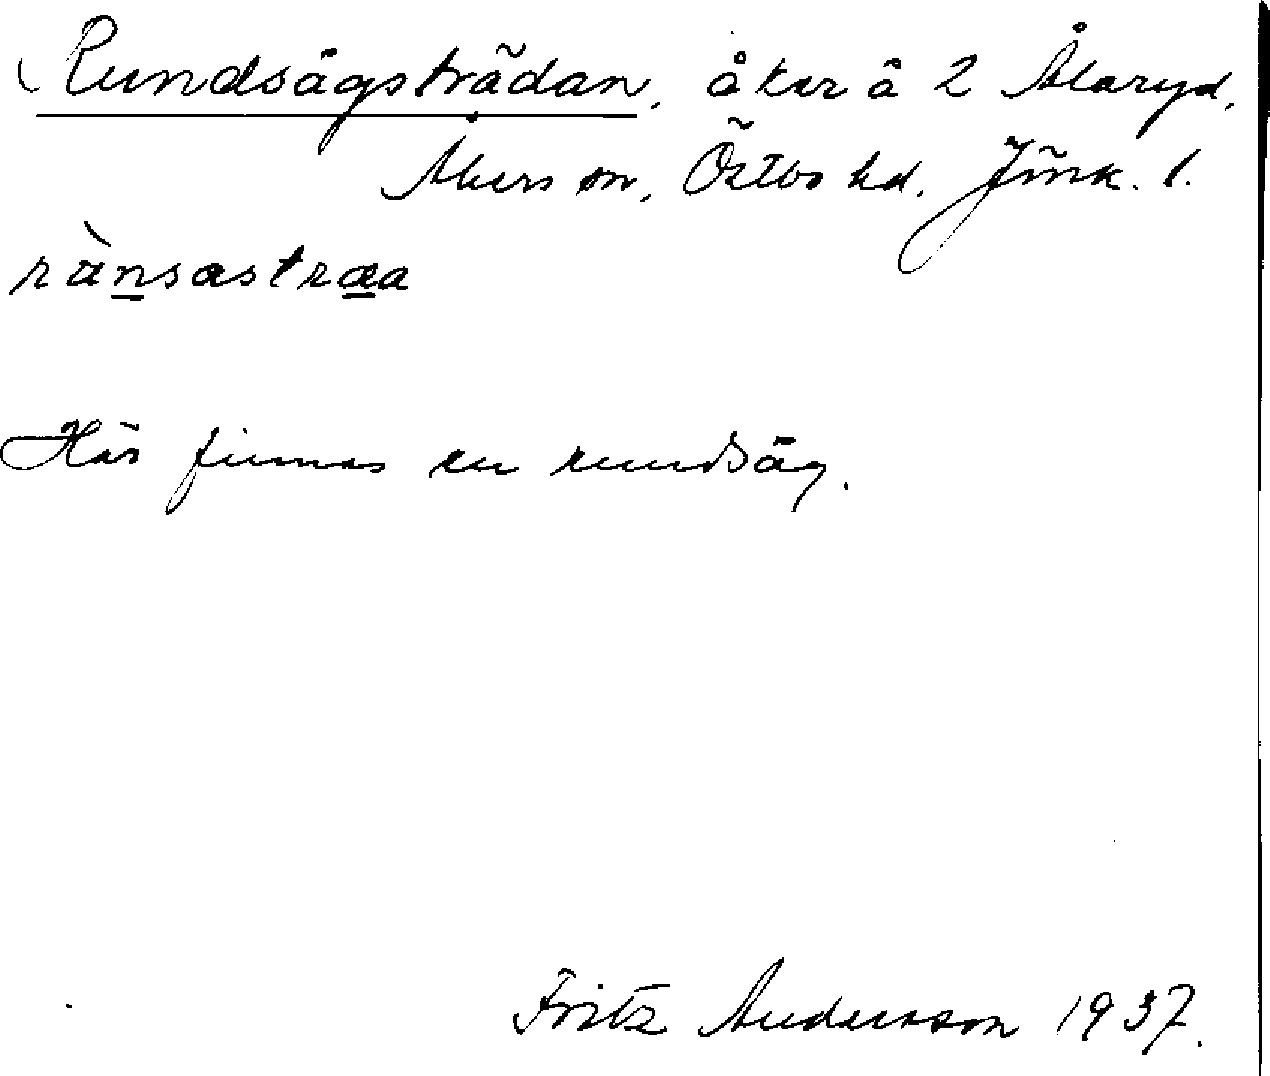 Rundsågsträdan, åker å 2 Ålaryd,
Åkers sn, Östbo hd. Jönk. l.
rànsastraa
Här finnes en rundsåg.
Fritz Andersson 1937.